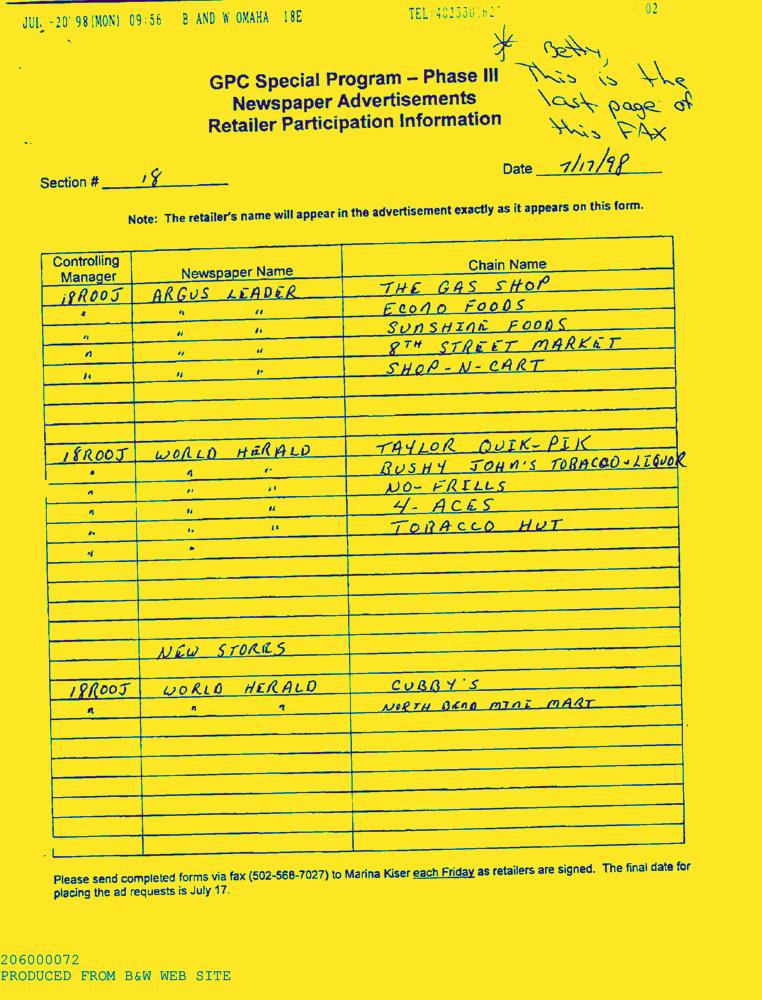 JUL -20' 98 (MON) 09:56 B AND W OMAHA 18E TEL: 02
* Betty,
This is the
last page of
this FAX
GPC Special Program – Phase III
Newspaper Advertisements
Retailer Participation Information
Section # 18 Date 7/17/98
Note: The retailer's name will appear in the advertisement exactly as it appears on this form.
Controlling Manager Newspaper Name Chain Name
18R00J ARGUS LEADER THE GAS SHOP
" " " ECONO FOODS
" " " SUNSHINE FOODS
" " " 8TH STREET MARKET
" " " SHOP-N-CART
18R00J WORLD HERALD TAYLOR QUIK-PIK
" " " BUSHY JOHN'S TOBACCO+LIQUOR
" " " NO-FRILLS
" " " 4-ACES
" " " TOBACCO HUT
" "
NEW STORES
18R00J WORLD HERALD CUBBY'S
" " " NORTH BEND MINI MART
Please send completed forms via fax (502-568-7027) to Marina Kiser each Friday as retailers are signed. The final date for
placing the ad requests is July 17.
206000072
PRODUCED FROM B&W WEB SITE